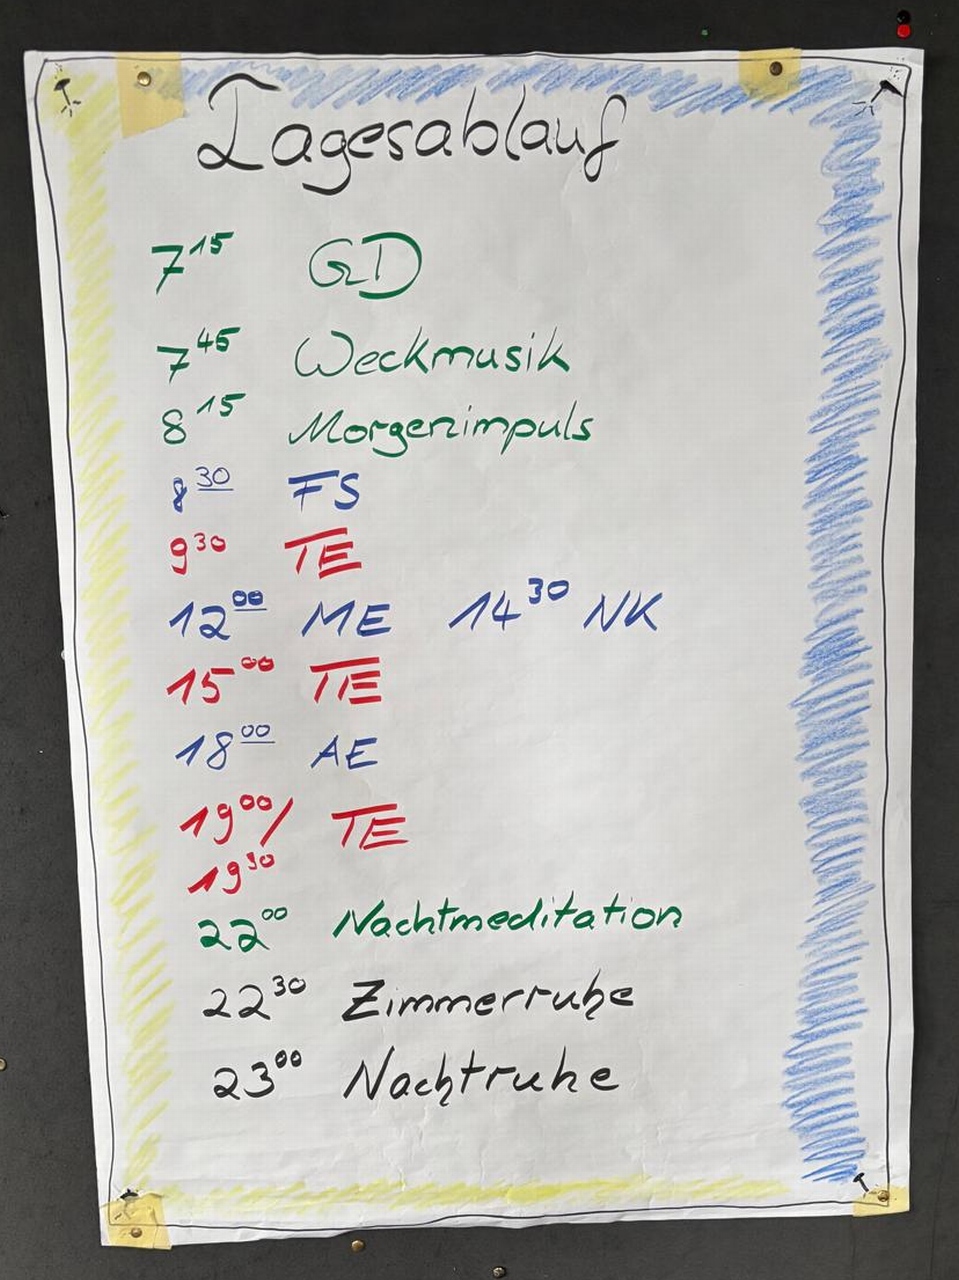 Tagesablauf
7 15 GD
7 45 Weckmusik
8 15 Morgenimpuls
8 30 FS
9 30 TE
12 00 ME 14 30 NK
15 00 TE
18 00 AE
19 00/ TE
19 30
22 00 Nachtmeditation
22 30 Zimmerruhe
23 00 Nachtruhe